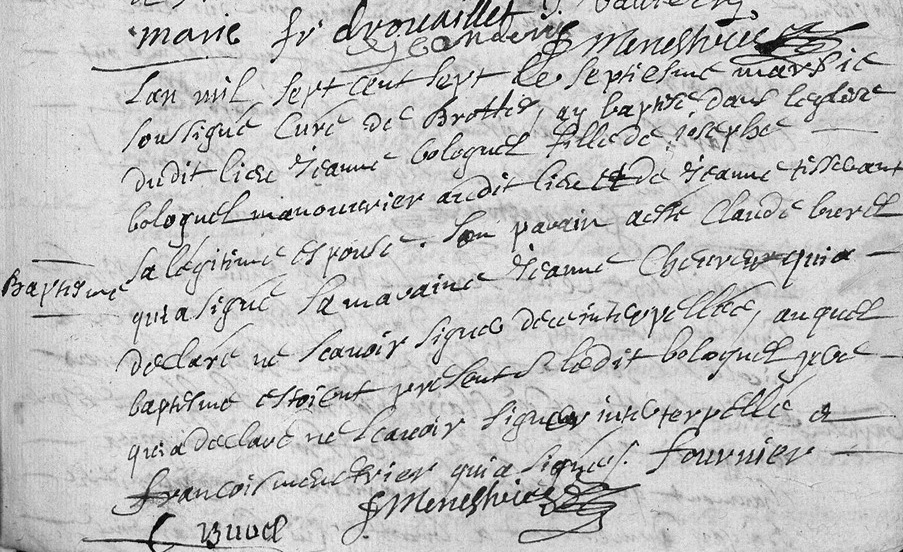 marie fr drouaillet
f Menestrier
Lan mil sept cent sept le septiesme mars ie
soussigné Curé de Brottes, ay baptisé dans leglise
dudit lieu Jeanne bologuel fille de josephe
bologuel manouvrier audit lieu et de Jeanne tisserant
sa légitime espouse. Son parain a esté Claude buvel
Baptisme
qui a signé la maraine Jeanne qui a
declaré ne scavoir signer de ce interpellée, auquel
baptesme estoient presents ledit bologuel pere
qui a declaré ne scavoir signer interpellé et
francois menetrier qui a signés. fournier
C Buvel f Menestrier